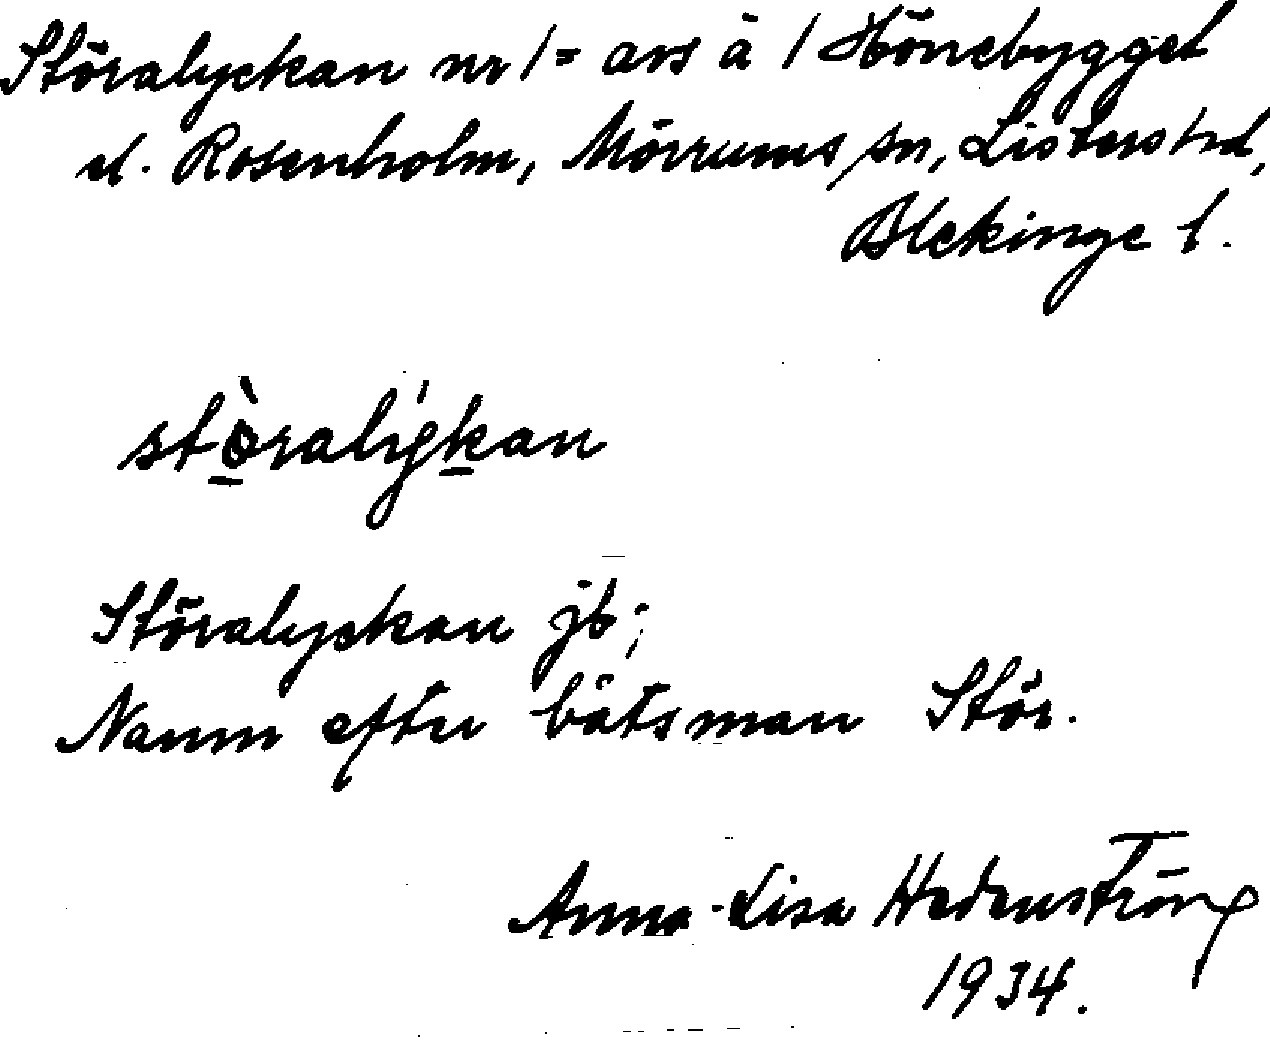 Störalyckan nr 1 = avs å 1 Hönebygget
el. Rosenholm, Mörrums sn, Listers hd,
Blekinge l.
stò̠raly̍k̠an
Störalyckan jb;
Namn efter båtsman Stör.
Anna-Lisa Hedenström
1934.